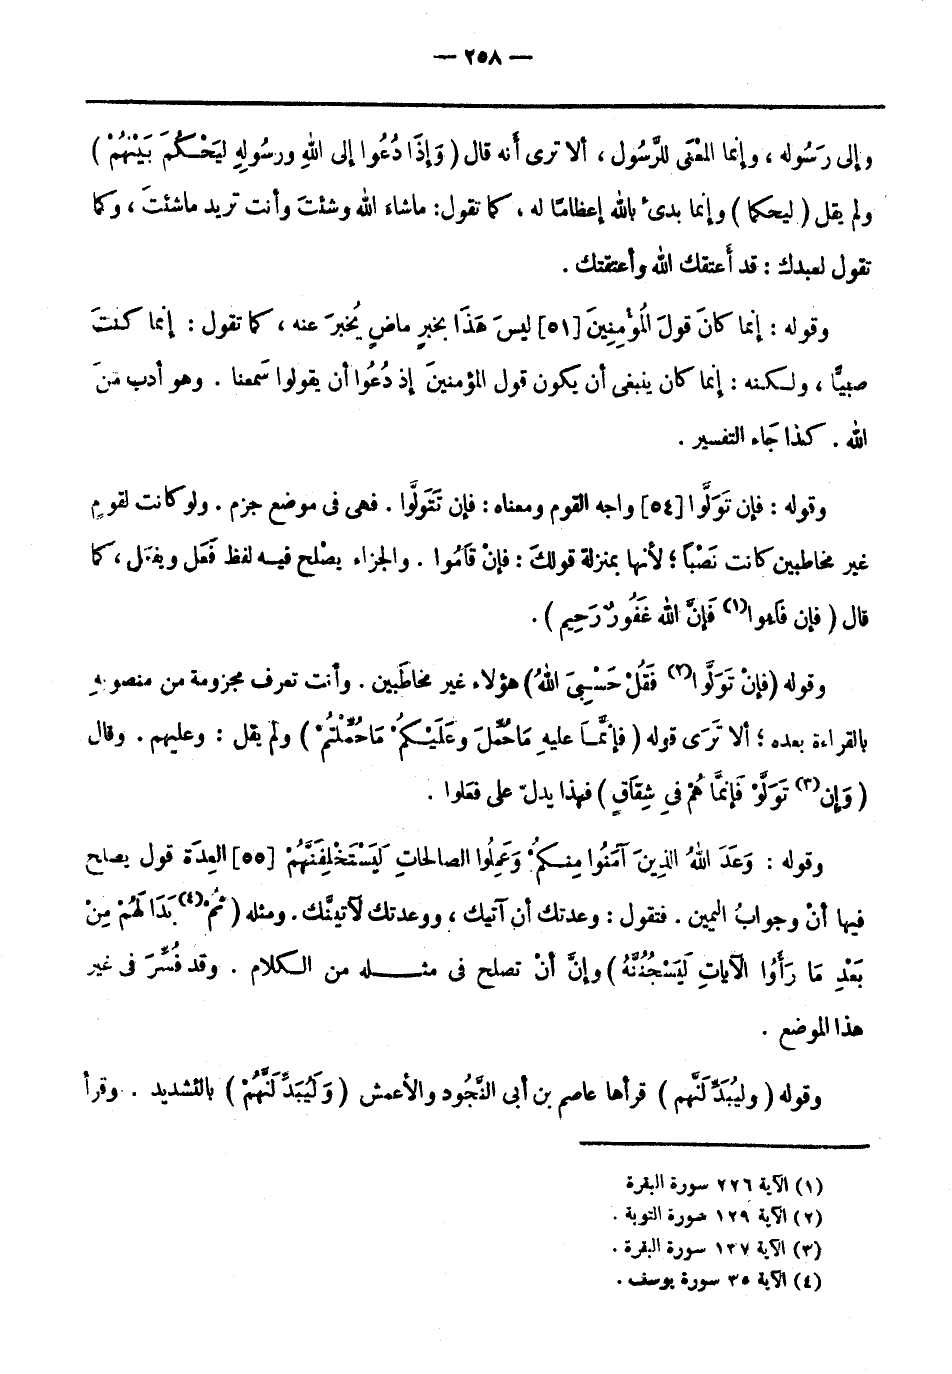 — ٢٥٨ —
وإلى رَسُوله ، وإنما المَعْنَى للرَّسُول ، ألا ترى أنه قال ( وَإِذَا دُعُوا إلى اللهِ ورسُولِهِ ليَحْكُمَ بَيْنَهُمْ )
ولم يقل ( ليحكما ) وإنما بدىء بالله إعظامًا له ، كما تقول : ماشاء الله وشئتَ وأنت تريد ماشئتَ ، وكما
تقول لعبدك : قد أَعتقك الله وأعتقتك .
وقوله : إنما كانَ قولَ المُؤْمِنِينَ [٥١] ليسَ هَذَا بخبرٍ ماضٍ يُخبرَ عنه ، كما تقول : إنما كنتَ
صبيًّا ، ولكنه : إنما كان ينبغى أن يكون قول المؤمنينَ إذ دُعُوا أن يقولوا سَمعنا . وهو أدب منَ
الله . كذا جَاء التفسير .
وقوله : فإن تَوَلَّوا [٥٤] واجه القوم ومعناه : فإن تَتَولَّوا . فهى فى موضع جزم . ولو كانت لقومٍ
غير مخاطبين كانت نَصْباً ؛ لأنها بمنزلة قولكَ : فإنْ قاَمُوا . والجزاء يصْلح فيه لفظ فَعَل ويفعَل ، كما
قال ( فإن فَاءوا(١) فَإنَّ الله غَفُورٌ رَحِيم ) .
وقوله (فإنْ تَوَلَّوا(٢) فَقُلْ حَسْبِىَ اللهُ) هؤلاء غير مخاطَبين . وأنت تعرف مجزومة من منصوبهِ
بالقراءة بعده ؛ ألا تَرَى قوله ( فإنَّمَا عليهِ مَاحُمِّلَ وعَلَيْكُمْ مَاحُمِّلْتُمْ ) ولم يقل : وعليهم . وقال
( وَإن(٣) تَوَلَّوْ فَإنمَّا هُمْ فى شِقَاقٍ ) فهذا يدلّ على فَعَلوا .
وقوله : وَعَدَ اللهُ الذِينَ آمَنُوا مِنكُمْ وَعَمِلُوا الصالحاتِ لَيَسْتَخْلِفَنَّهُمْ [٥٥] العِدَة قول يصلح
فيها أنْ وجوابُ اليمين . فتقول : وعدتك أن آتيك ، ووعدتك لآتينَّك . ومثله ( ثمُ(٤) بَدَا لَهُمْ مِنْ
بَعْدِ مَا رَأَوُا الآياتِ لَيَسْجُنُنَّهُ ) وإنَّ أنْ تصلح فى مثله من الكلام . وقد فُسِّرَ فى غير
هذا الموضع .
وقوله ( وليُبَدِّلَنَّهم ) قرأها عاصم بن أبى النَّجُود والأعمش ( وَلَيُبَدِّلَنَّهُمْ ) بالتشديد . وقرأ
(١) الآية ٢٢٦ سورة البقرة
(٢) الآية ١٢٩ سورة التوبة .
(٣) الآية ١٣٧ سورة البقرة .
(٤) الآية ٣٥ سورة يوسف .